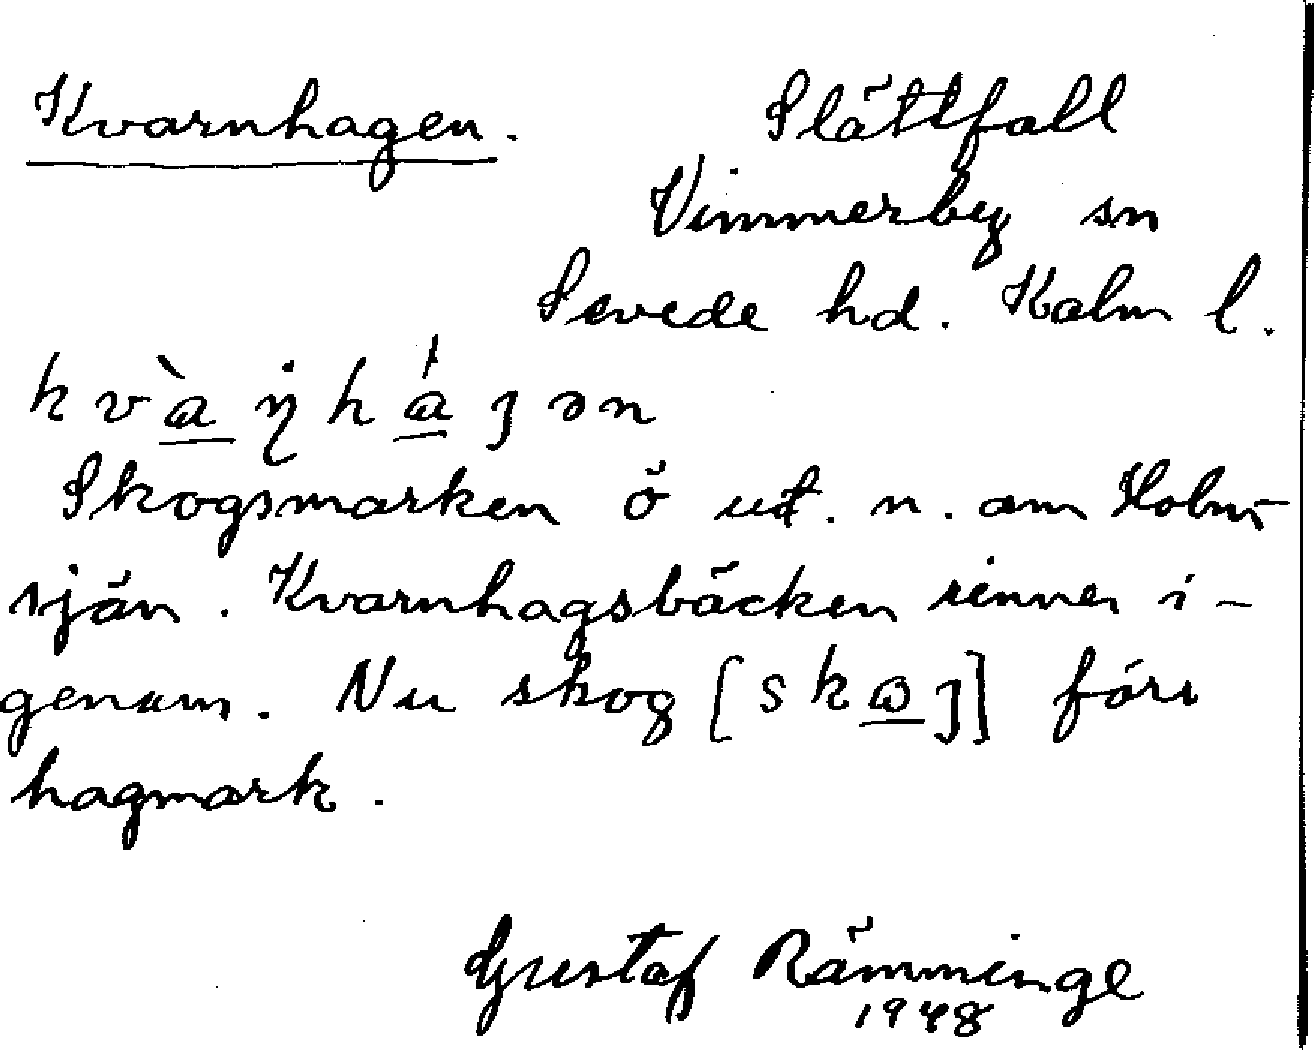 Kvarnhagen. Slättfall
Vimmerby sn
Sevede hd. Kalm l.
kvàŋháȷən
Skogsmarken ö ut. n. om Holm-
sjön. Kvarnhagsbäcken rinner i-
genom. Nu skog [skωȷ] förr
hagmark.
Gustaf Rämminge
1948